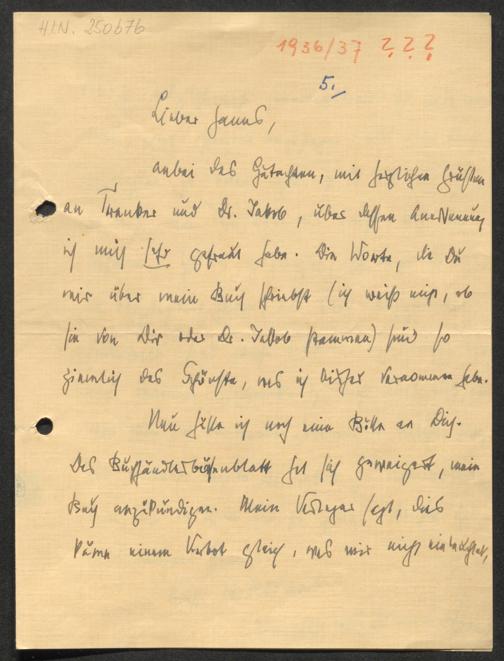 H.I.N. 250676
1936/37 ? ? ?
5.
Lieber Hanns,
anbei das Gutachten, mit herzlichen Grüßen
an Trenker und Dr. Jakob, über dessen Anerkennung
ich mich sehr gefreut habe. Die Worte, die Du
mir über mein Buch schriebst (ich weiß nicht, ob
sie von Dir oder Dr. Jakob stammen) sind so
ziemlich das Schönste, was ich bisher vernommen habe.
Nun hätte ich noch eine Bitte an Dich.
Das Buchhändlerbörsenblatt hat sich geweigert, mein
Buch anzukündigen. Mein Verleger sagt, dies
käme einem Verbot gleich, was mir nicht einleuchtet,